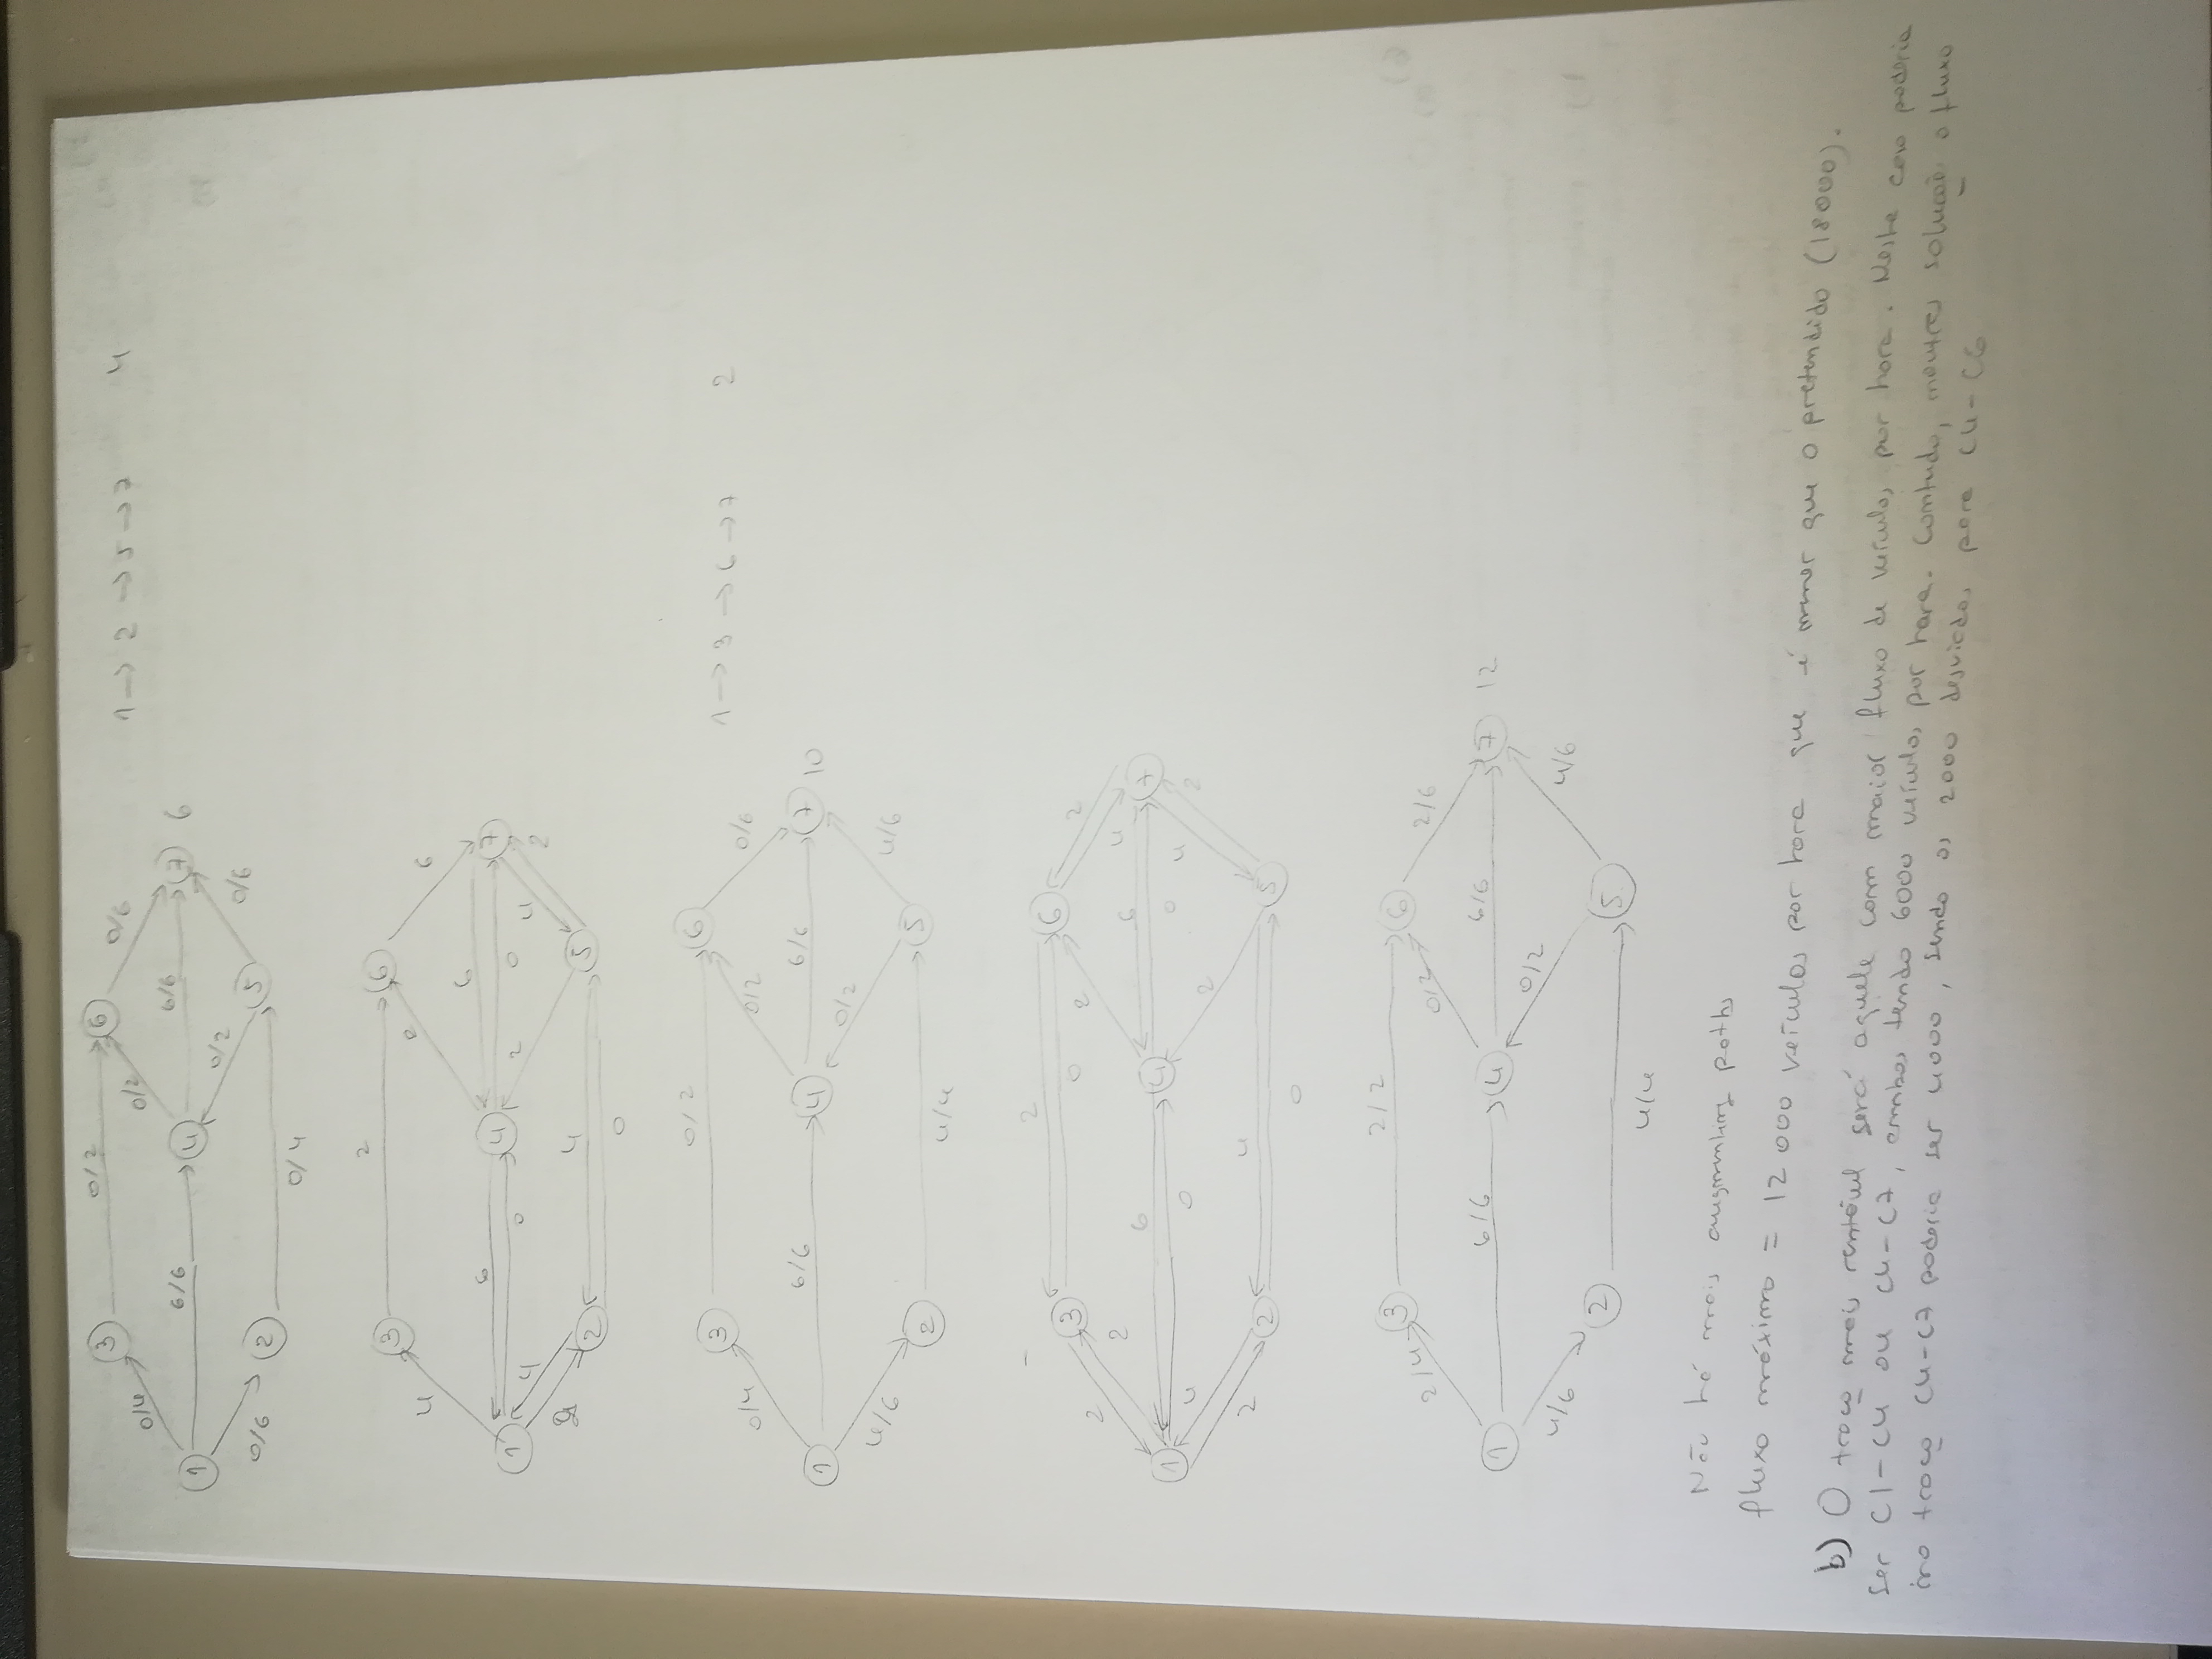 3 0/2 6 0/6 1 → 2 → 5 → 7 4
0/4 0/2
1 6/6 4 6/6 7 6
0/6 2 0/2 5 0/6
0/4
2
3 6
4 6
6 4 6 7
1 4 0 2 0 4 2
2 2 4 5
0
3 0/2 6 1 → 3 → 6 → 7 2
0/4 0/2 0/6
1 6/6 4 6/6 7 10
4/6 0/2 4/6
2 5
4/4
3 2 6 2
2 2 0 2 4
1 6 4 6 7
4 0 2 0 4 2
2 2 4 5
0
3 2/2 6
2/4 0/2 2/6
1 6/6 4 6/6 7 12
4/6 0/2 4/6
2 5
4/4
Não há mais augmenting paths
fluxo máximo = 12 000 veículos por hora que é menor que o pretendido (18000).
b) O troço mais rentável será aquele com maior fluxo de veículos por hora. Neste caso poderia
ser C1-C4 ou C4-C7, ambos tendo 6000 veículos por hora. Contudo, noutras solução o fluxo
no troço C4-C7 poderia ser 4000, sendo os 2000 desviados para C4-C6